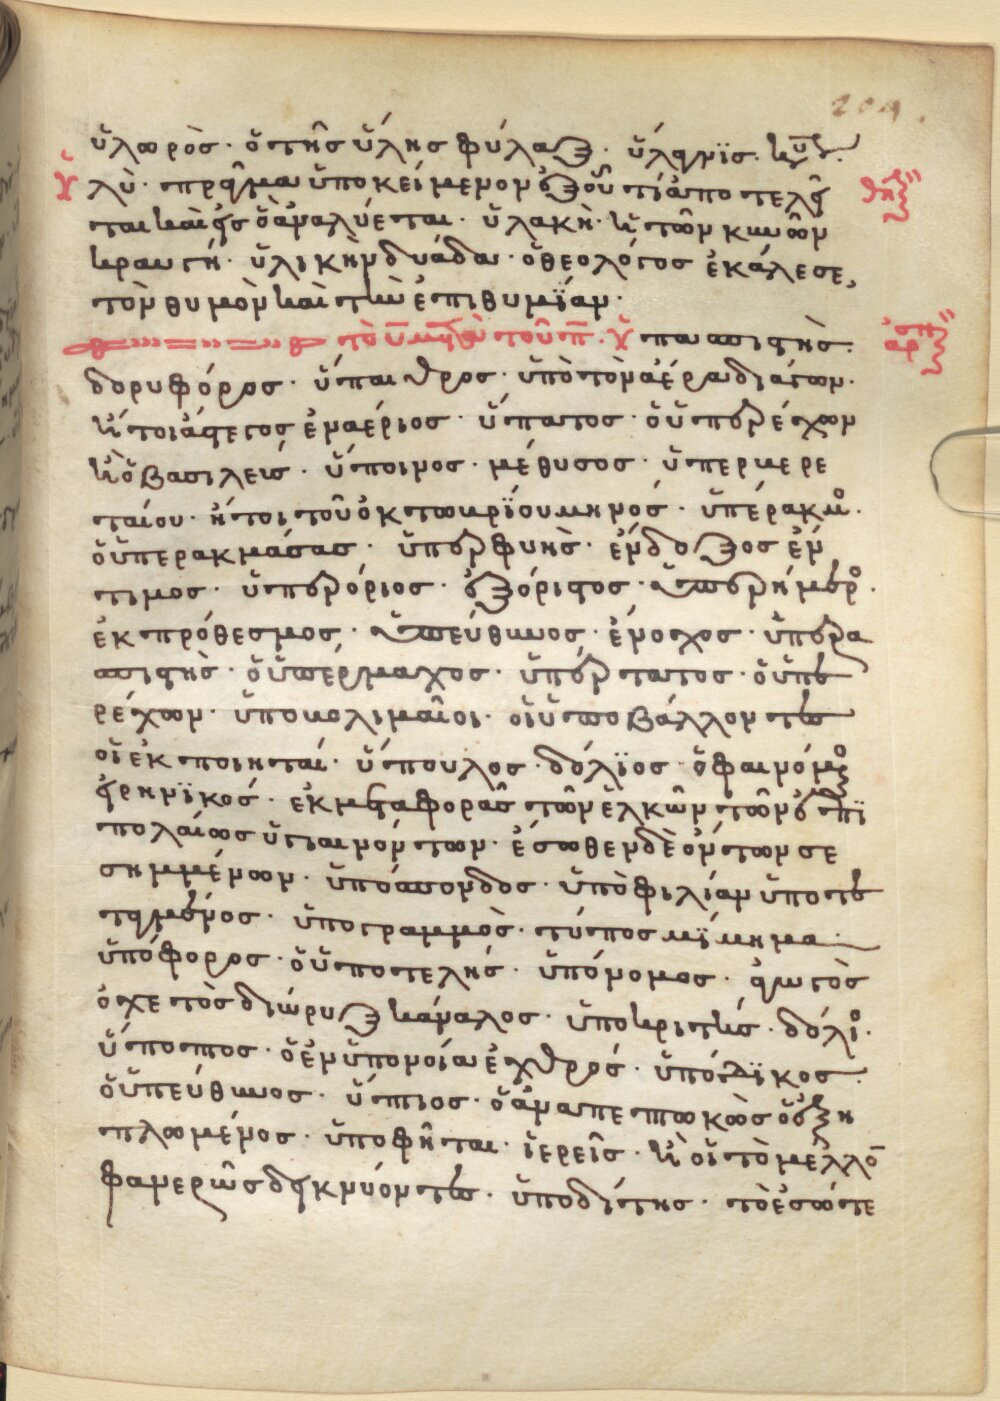 204.
ὑλωρὸς· ὁ τῆς ὕλης φύλαξ· ὑλαῖς·
ὕλη· πρᾶγμα ὑποκείμενον ἐξ οὗ τι ἀποτελεῖ
ται καὶ εἰς ὃ ἀναλύεται· ὑλακὴ· ἡ τῶν κυνῶν
κραυγή· ὑλικὴν δυάδα· ὁ θεολόγος ἐκάλεσε,
τὸν θυμὸν καὶ τὴν ἐπιθυμίαν·
τὸ υ μετὰ τοῦ π· ὑπασπιστὴς·
δορυφόρος· ὕπαιθρος· ὑπὸ τὸν ἀέρα διάγων·
ἢ τοιάστεγος ἐναέριος· ὕπατος· ὁ ὑπερέχων
ἢ ὁ βασιλεύς· ὕποινος· μέθυσος· ὑπερμερε
ταίου· ἤτοι τοῦ ὀκτωβρίου μηνός· ὑπέρακμος·
ὁ ὑπερακμάσας· ὑπερφυὴς· ἔνδοξος ἔν
τιμος· ὑπερόριος· ἐξόριστος· ὑπερήμερος·
ἐκπρόθεσμος· ὑπεύθυνος· ἔνοχος· ὑπερα
σπιστὴς· ὁ ὑπέρμαχος· ὑπέρτατος· ὁ ὑπε
ρέχων· ὑποβολιμαῖοι· οἱ ὑποβάλλοντες
οἱ ἐκποιηταί· ὕπουλος· δόλϊος· ὁ φαινόμενος
εἰρηνϊκός· ἐκ μεταφορᾶς τῶν ἑλκῶν τῶν ἐπϊ
πολαίως ὑγιαινόντων· ἔσωθεν δὲ ὄντων σε
σημμένων· ὑπόσπονδος· ὑπὸ φιλίαν ὑποτε
ταγμένος· ὑπογραμμὸς· τύπος μϊμημα·
ὑπόφορος· ὁ ὑποτελής· ὑπόνομος· ἀγωγὸς
ὀχετὸς διώρυξ κάναλος· ὑποκριτής· δόλιος·
ὕποπτος· ὁ ἐν ὑπονοία ἐχθρός· ὑπόδϊκος·
ὁ ὑπεύθυνος· ὕπτιος· ὁ ἀναπεπτωκὼς ὁ ἐξη
πλωμένος· ὑποφῆται· ἱερεῖς· ἢ οἱ τὸ μέλλον
φανερῶς δεικνύοντες· ὑποδύτης· τὸ ἐσώτε